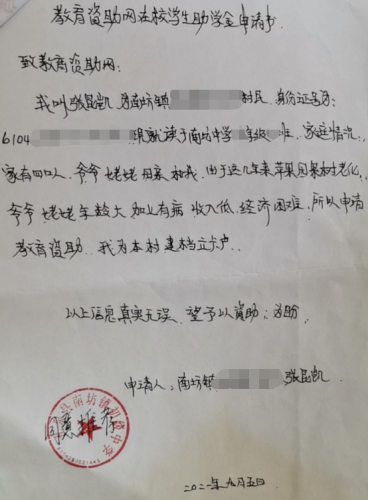 教育资助网在校学生助学金申请书.
致教育资助网:
我叫张昆凯,男南坊镇 村民,身份证号为:
6104 现就读于南坊中学 年级 班.家庭情况:
家有四口人,爷爷 姥姥 母亲 和我,由于这几年来苹果园果树老化,
爷爷姥姥年龄大 加上有病 收入低.经济困难,所以申请
教育资助. 我为本村建档立卡户.
以上信息真实无误,望予以资助,为盼
申请人:南坊镇 张昆凯
县南坊镇初级中学
同意推荐
二〇二一年九月五日.